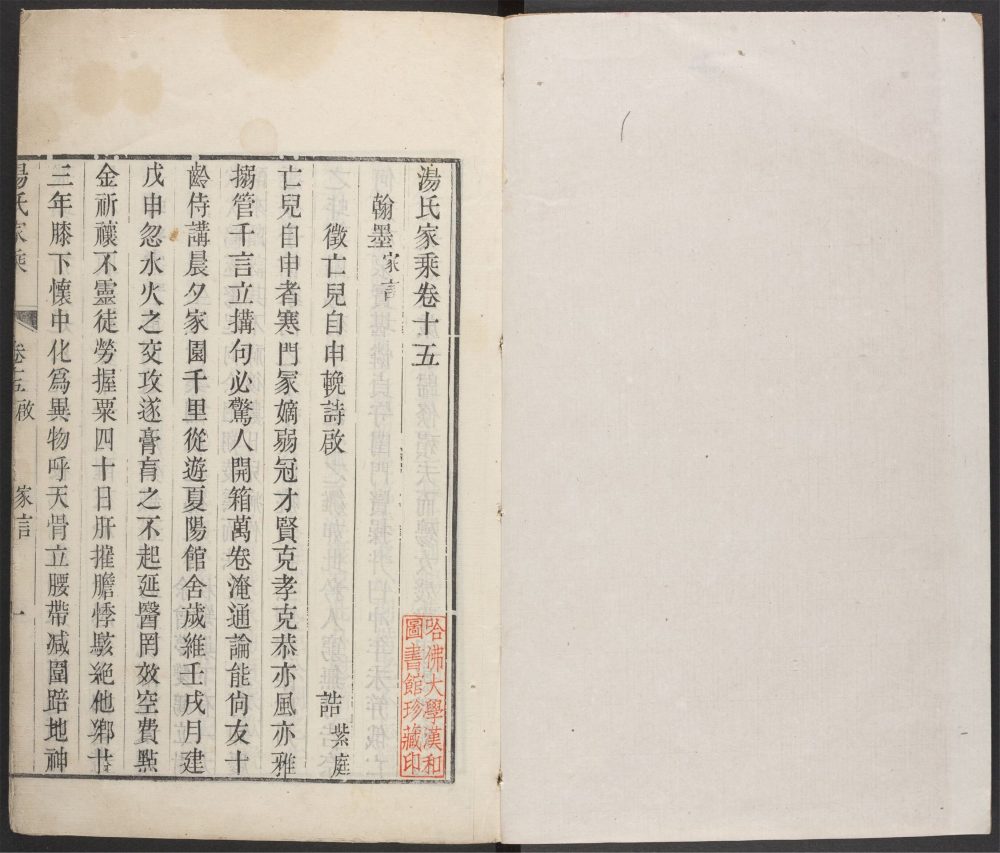 湯氏家乘卷十五
翰墨家言
徵亡兒自申輓詩啟
誥紫庭
亡兒自申者寒門冢嫡弱冠才賢克孝克恭亦風亦雅
搦管千言立搆句必驚人開箱萬卷淹通論能尙友十
齡侍講晨夕家園千里從遊夏陽館舍歲維壬戌月建
戊申忽水火之交攻遂膏肓之不起延醫罔效空費㸃
金祈禳不靈徒勞握粟四十日肝摧膽悸駭絕他鄉廿
三年膝下懷中化爲異物呼天骨立腰帶减圍踣地神
湯氏家乘
卷十五 啟
家言
一
哈佛大學漢和
圖書館珍藏印